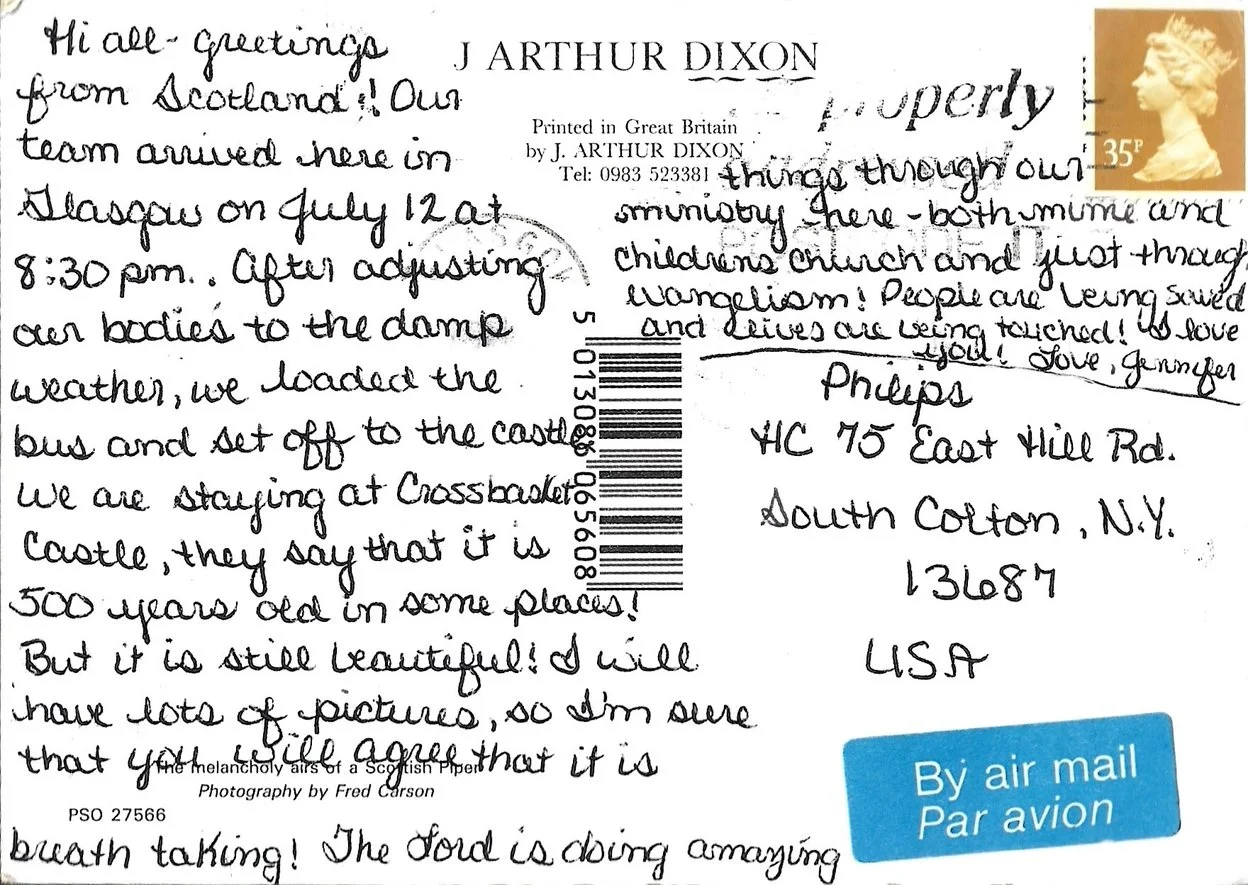 Hi all - greetings
from Scotland!! Our
team arrived here in
Glasgow on July 12 at
8:30 pm.. After adjusting
our bodies to the damp
weather, we loaded the
bus and set off to the castle
We are staying at Crossbasket
Castle, they say that it is
500 years old in some places!
But it is still beautiful! I will
have lots of pictures, so I'm sure
that you will agree that it is
breath taking! The Lord is doing amazing
things through our
ministry here - both mime and
childrens church and just through
evangelism! People are being saved
and lives are being touched! I love
you! Love, Jennifer
Philips
HC 75 East Hill Rd.
South Colton, N.Y.
13687
USA
J ARTHUR DIXON
Printed in Great Britain
by J. ARTHUR DIXON
Tel: 0983 523381
properly
35P
5 013086 065608
The melancholy airs of a Scottish Piper
Photography by Fred Carson
PSO 27566
By air mail
Par avion